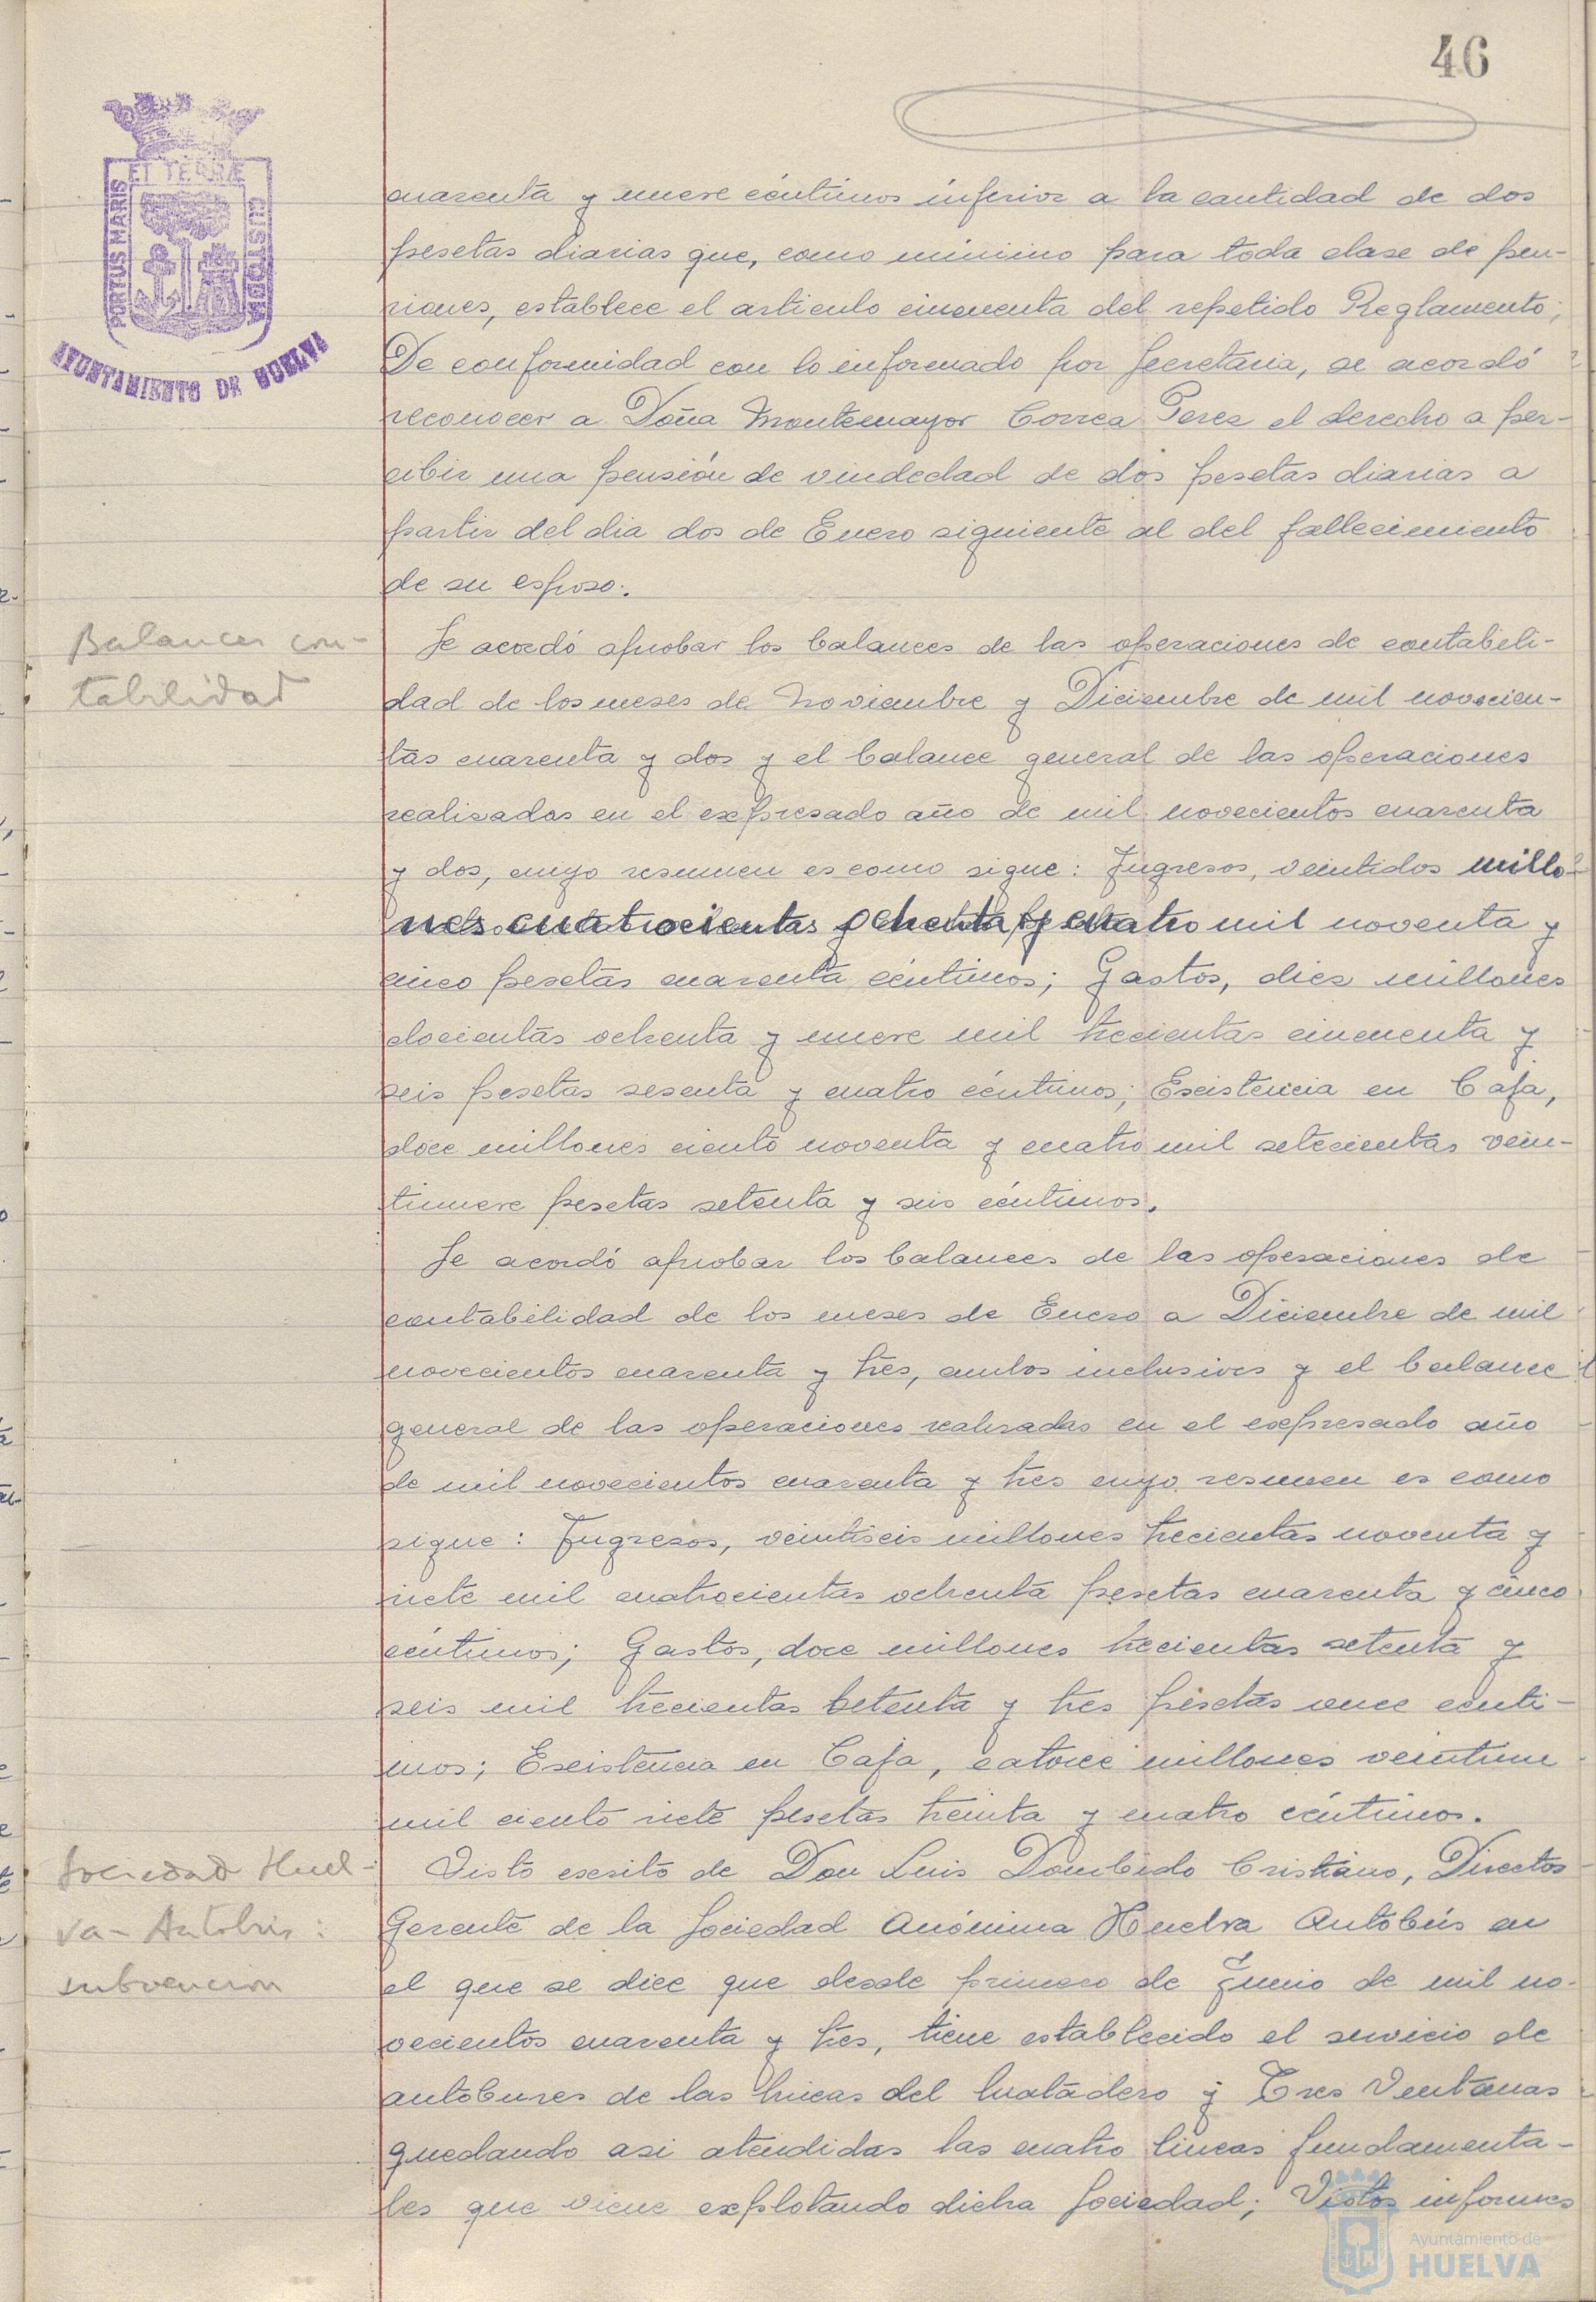 46
ET TERRÆ
PORTUS MARIS
CUSTODIA
AYUNTAMIENTO DE HUELVA
cuarenta y nueve céntimos inferior a la cantidad de dos
pesetas diarias que, como mínimo para toda clase de pen-
siones, establece el articulo cincuenta del repetido Reglamento;
De conformidad con lo informado por Secretaria, se acordó
reconocer a Doña Montemayor Correa Perez el derecho a per-
cibir una pensión de viudedad de dos pesetas diarias a
partir del dia dos de Enero siguiente al del fallecimiento
de su esposo.
Balances con-
tabilidad
Se acordó aprobar los balances de las operaciones de contabili-
dad de los meses de Noviembre y Diciembre de mil novecien-
tas cuarenta y dos y el balance general de las operaciones
realizadas en el expresado año de mil novecientos cuarenta
y dos, cuyo resumen es como sigue: Ingresos, veintidos millo-
nes cuatrocientas ochenta y cuatro mil noventa y
cinco pesetas cuarenta céntimos; Gastos, diez millones
docientas ochenta y nueve mil trecientas cincuenta y
seis pesetas sesenta y cuatro céntimos; Existencia en Caja,
doce millones ciento noventa y cuatro mil setecientas vein-
tinueve pesetas setenta y seis céntimos.
Se acordó aprobar los balances de las operaciones de
contabilidad de los meses de Enero a Diciembre de mil
novecientos cuarenta y tres, ambos inclusives y el balance
general de las operaciones realizadas en el expresado año
de mil novecientos cuarenta y tres cuyo resumen es como
sigue: Ingresos, veintiseis millones trecientas noventa y
siete mil cuatrocientas ochenta pesetas cuarenta y cinco
céntimos; Gastos, doce millones trecientas setenta y
seis mil trecientas setenta y tres pesetas once centi-
mos; Existencia en Caja, catorce millones veintiun
mil ciento siete pesetas treinta y cuatro céntimos.
Sociedad Huel-
va-Autobus:
subvencion
Visto escrito de Don Luis Dombido Cristiano, Director
Gerente de la Sociedad Anónima Huelva Autobús en
el que se dice que desde primero de Junio de mil no-
vecientos cuarenta y tres, tiene establecido el servicio de
autobuses de las lineas del Matadero y Tres Ventanas
quedando asi atendidas las cuatro lineas fundamenta-
les que viene explotando dicha Sociedad; Vistos informes
Ayuntamiento de
HUELVA